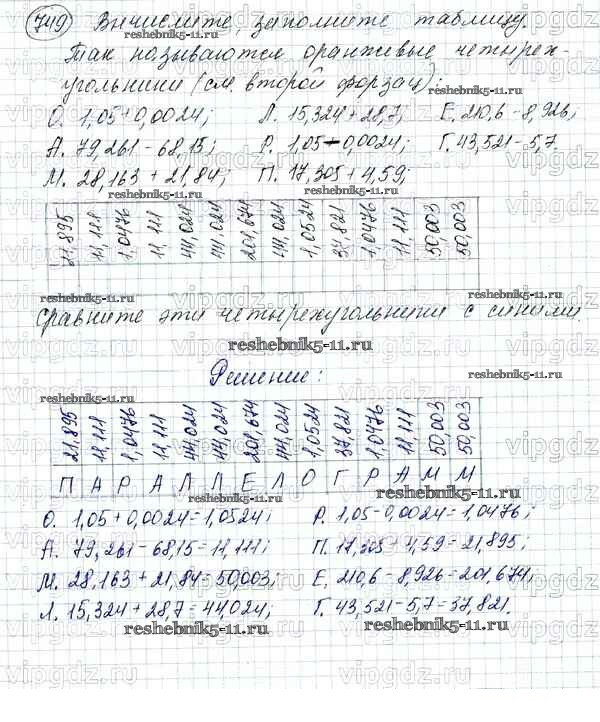 749 Вычислите, заполните таблицу.
Так называются оранжевые четырех-
угольники (см. второй форзац):
О. 1,05+0,0024; Л. 15,324+28,7; Е. 210,6-8,926;
А. 79,261-68,15; Р. 1,05-0,0024; Г. 43,521-5,7.
М. 28,163+21,84; П. 17,305+4,59;
21,895 11,111 1,0476 11,111 44,024 44,024 201,674 44,024 1,0524 37,821 1,0476 11,111 50,003 50,003
Сравните эти четырехугольники с синими.
reshebnik5-11.ru
Решение:
21,895 11,111 1,0476 11,111 44,024 44,024 201,674 44,024 1,0524 37,821 1,0476 11,111 50,003 50,003
П А Р А Л Л Е Л О Г Р А М М
О. 1,05+0,0024=1,0524; Р. 1,05-0,0024=1,0476;
А. 79,261-68,15=11,111; П. 17,305+4,59=21,895;
М. 28,163+21,84=50,003; Е. 210,6-8,926=201,674;
Л. 15,324+28,7=44,024; Г. 43,521-5,7=37,821.
reshebnik5-11.ru reshebnik5-11.ru